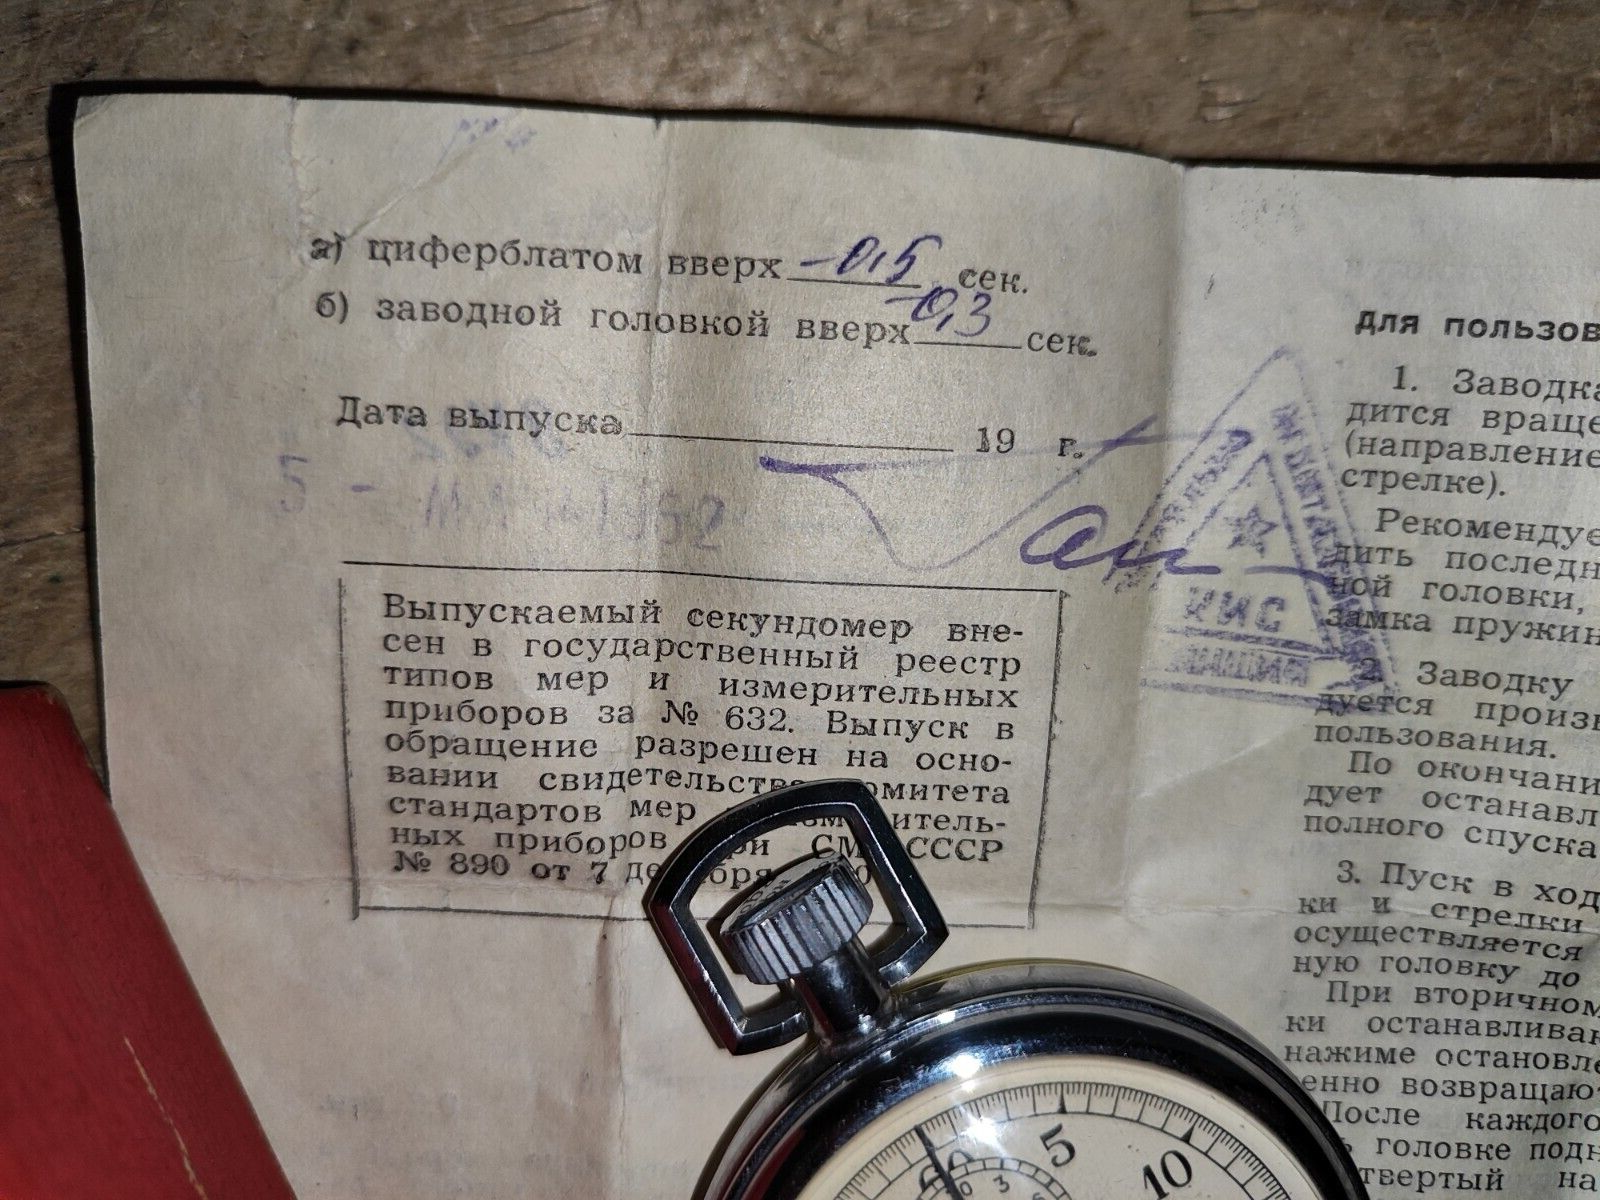 а) циферблатом вверх -0,5 сек.
б) заводной головкой вверх -0,3 сек.
Дата выпуска 19 г.
5 - 1952
Выпускаемый секундомер вне-
сен в государственный реестр
типов мер и измерительных
приборов за № 632. Выпуск в
обращение разрешен на осно-
вании свидетельства омитета
стандартов мер итель-
ных приборов ри СМ СССР
№ 890 от 7 де бря 0
КИС
для пользов
1. Заводка
дится враще
(направление
стрелке).
Рекомендуе
дить последн
ной головки,
замка пружин
2. Заводку
дуется произв
пользования.
По окончани
дует останавл
полного спуска
3. Пуск в ход
ки и стрелки
осуществляется
ную головку до
При вторичном
ки останавливаю
нажиме остановле
енно возвращают
После каждого
ь головке подн
твертый на
60 5 10
3